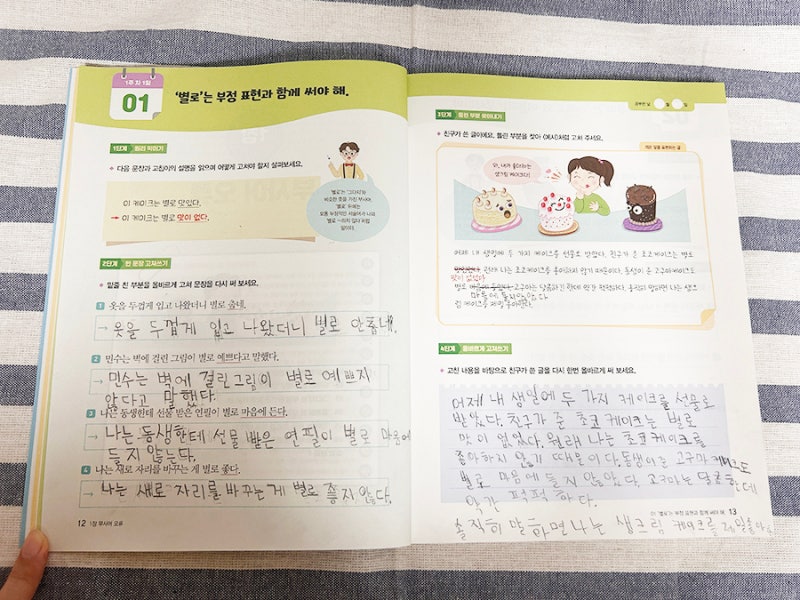 1주차 1일
01
'별로'는 부정 표현과 함께 써야 해.
1단계 원리 익히기
다음 문장과 고침이의 설명을 읽으며 어떻게 고쳐야 할지 살펴보세요.
이 케이크는 별로 맛있다.
→ 이 케이크는 별로 맛이 없다.
'별로'는 '그다지'와
비슷한 뜻을 가진 부사야.
'별로' 뒤에는
보통 부정적인 서술어가 나와
'별로 ~하지 않다'처럼
쓰이지.
2단계 한 문장 고쳐쓰기
밑줄 친 부분을 올바르게 고쳐 문장을 다시 써 보세요.
1 옷을 두껍게 입고 나왔더니 별로 춥네.
→ 옷을 두껍게 입고 나왔더니 별로 안춥네.
2 민수는 벽에 걸린 그림이 별로 예쁘다고 말했다.
→ 민수는 벽에 걸린그림이 별로 예쁘지
않다고 말했다.
3 나는 동생한테 선물 받은 연필이 별로 마음에 든다.
→ 나는 동생한테 선물 받은 연필이 별로 마음에
들지 않는다.
4 나는 새로 자리를 바꾸는 게 별로 좋다.
→ 나는 새로 자리를 바꾸는 게 별로 좋지 않다.
12 1장 부사어 오류
공부한 날 월 일
3단계 틀린 부분 찾아내기
친구가 쓴 글이에요. 틀린 부분을 찾아 <예시>처럼 고쳐 주세요.
와, 내가 좋아하는
생크림 케이크다!
어제 내 생일에 두 가지 케이크를 선물로 받았다. 친구가 준 초코케이크는 별로
원래 나는 초코케이크를 좋아하지 않기 때문이다. 동생이 준 고구마케이크도
맛이 없었다
별로 고구마는 달콤하긴 한데 약간 퍽퍽하다. 솔직히 말하면 나는 생크
마음에 들지않았다
림 케이크를 제일 좋아한다.
4단계 올바르게 고쳐쓰기
고친 내용을 바탕으로 친구가 쓴 글을 다시 한번 올바르게 써 보세요.
어제 내 생일에 두 가지 케이크를 선물로
받았다. 친구가 준 초코 케이크는 별로
맛이 없었다. 원래 나는 초코케이크를
좋아하지 않기 때문이다. 동생이준 고구마 케이크도
별로 마음에 들지 않았다. 고구마는 달콤한데
약간 퍽퍽하다.
솔직히 말하면 나는 생크림 케이크를 제일좋아
01 '별로'는 부정 표현과 함께 써야 해 13